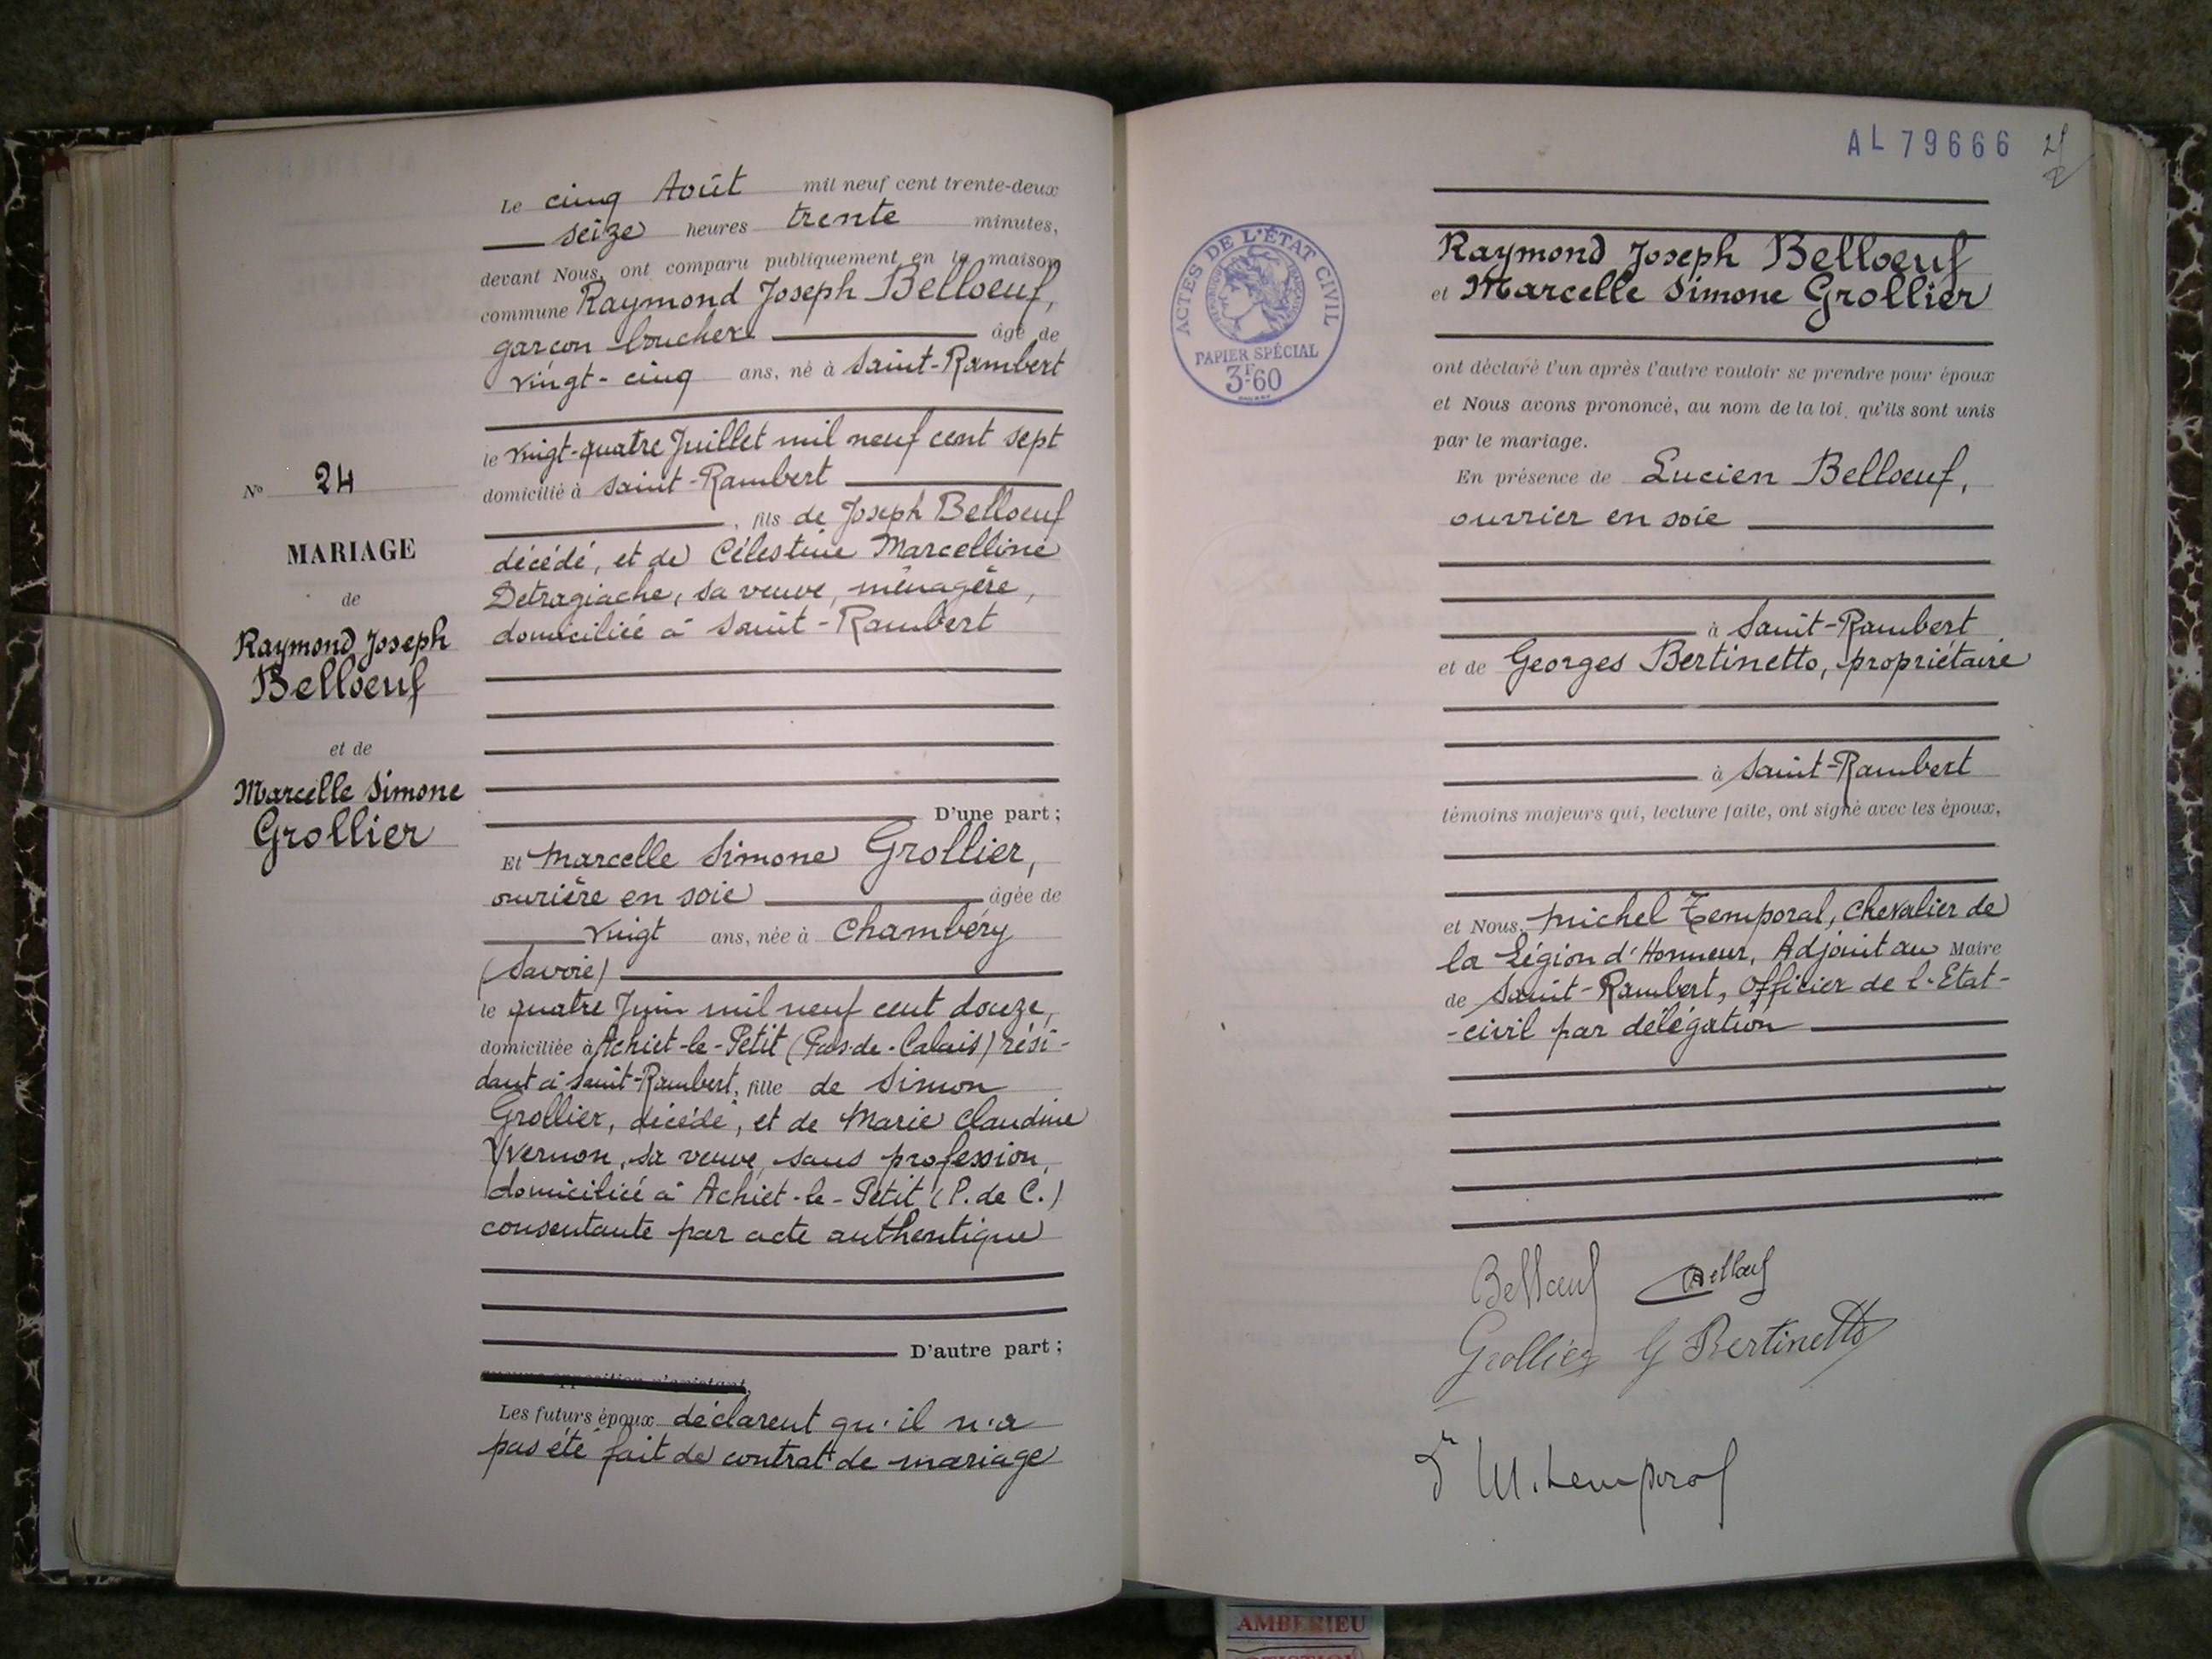 Le cinq Août mil neuf cent trente-deux
seize heures trente minutes,
devant Nous, ont comparu publiquement en la maison
commune Raymond Joseph Belloeuf,
garçon boucher âgé de
vingt-cinq ans, né à Saint-Rambert
le vingt-quatre Juillet mil neuf cent sept
domicilié à Saint-Rambert
, fils de Joseph Belloeuf
décédé, et de Célestine Marcelline
Detragiache, sa veuve, ménagère,
domiciliée à Saint-Rambert
D'une part ;
Et Marcelle Simone Grollier,
ouvrière en soie âgée de
vingt ans, née à Chambéry
(Savoie)
le quatre Juin mil neuf cent douze,
domiciliée à Achiet-le-Petit (Pas-de-Calais) rési-
dant à Saint-Rambert, fille de Simon
Grollier, décédé, et de Marie Claudine
Yvernon, sa veuve, sans profession,
domiciliée à Achiet-le-Petit (P. de C.)
consentante par acte authentique
D'autre part ;
Les futurs époux déclarent qu'il n'a
pas été fait de contrat de mariage
N° 24
MARIAGE
de
Raymond Joseph
Belloeuf
et de
Marcelle Simone
Grollier
AL 79666
ACTES DE L'ÉTAT CIVIL
PAPIER SPÉCIAL
3F60
Raymond Joseph Belloeuf
et Marcelle Simone Grollier
ont déclaré l'un après l'autre vouloir se prendre pour époux
et Nous avons prononcé, au nom de la loi, qu'ils sont unis
par le mariage.
En présence de Lucien Belloeuf,
ouvrier en soie
à Saint-Rambert
et de Georges Bertinetto, propriétaire
à Saint-Rambert
témoins majeurs qui, lecture faite, ont signé avec les époux,
et Nous, Michel Temporal, Chevalier de
la Légion d'Honneur, Adjoint au Maire
de Saint-Rambert, Officier de l'Etat-
-civil par délégation
Belloeuf Belloeuf
Grollier G Bertinetto
Dr M. Temporal
AMBERIEU